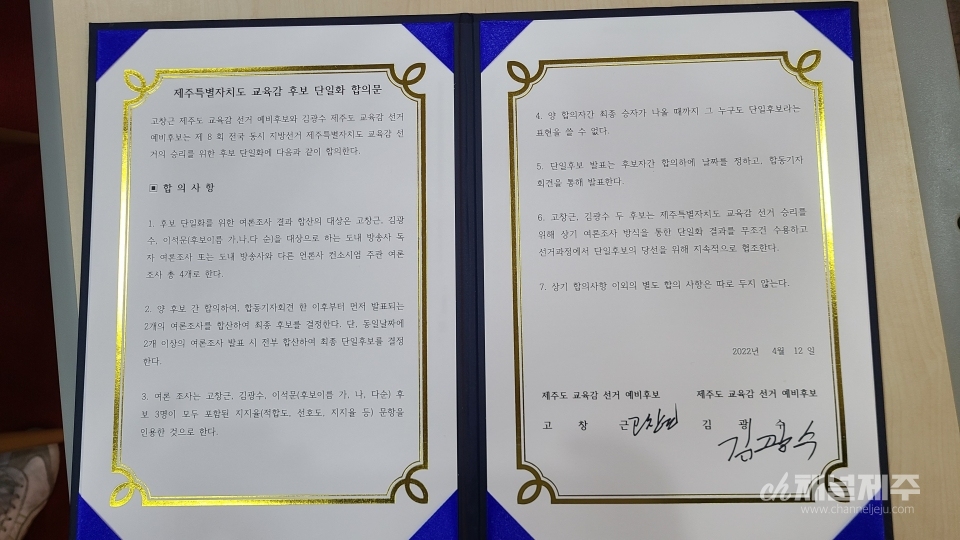 제주특별자치도 교육감 후보 단일화 합의문
고창근 제주도 교육감 선거 예비후보와 김광수 제주도 교육감 선거
예비후보는 제 8회 전국 동시 지방선거 제주특별자치도 교육감 선
거의 승리를 위한 후보 단일화에 다음과 같이 합의한다.
▣ 합 의 사 항
1. 후보 단일화를 위한 여론조사 결과 합산의 대상은 고창근, 김광
수, 이석문(후보이름 가,나,다 순)을 대상으로 하는 도내 방송사 독
자 여론조사 또는 도내 방송사와 다른 언론사 컨소시엄 주관 여론
조사 총 4개로 한다.
2. 양 후보 간 합의하여, 합동기자회견 한 이후부터 먼저 발표되는
2개의 여론조사를 합산하여 최종 후보를 결정한다. 단, 동일날짜에
2개 이상의 여론조사 발표 시 전부 합산하여 최종 단일후보를 결정
한다.
3. 여론 조사는 고창근, 김광수, 이석문(후보이름 가, 나, 다순) 후
보 3명이 모두 포함된 지지율(적합도, 선호도, 지지율 등) 문항을
인용한 것으로 한다.
4. 양 합의자간 최종 승자가 나올 때까지 그 누구도 단일후보라는
표현을 쓸 수 없다.
5. 단일후보 발표는 후보자간 합의하에 날짜를 정하고, 합동기자
회견을 통해 발표한다.
6. 고창근, 김광수 두 후보는 제주특별자치도 교육감 선거 승리를
위해 상기 여론조사 방식을 통한 단일화 결과를 무조건 수용하고
선거과정에서 단일후보의 당선을 위해 지속적으로 협조한다.
7. 상기 합의사항 이외의 별도 합의 사항은 따로 두지 않는다.
2022년 4월 12일
제주도 교육감 선거 예비후보 제주도 교육감 선거 예비후보
고 창 근 고창근 김 광 수
김광수
ch채널제주
www.channeljeju.com